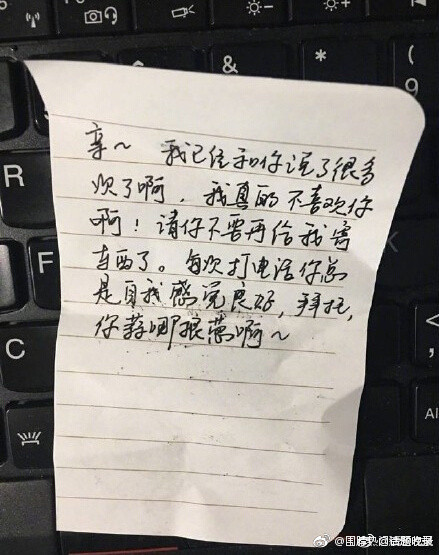 亲～ 我已经和你说了很多
次了啊，我真的不喜欢你
啊！请你不要再给我寄
东西了。每次打电话你总
是自我感觉良好，拜托，
你算哪根葱啊～
&
*
(
9
R
F
C